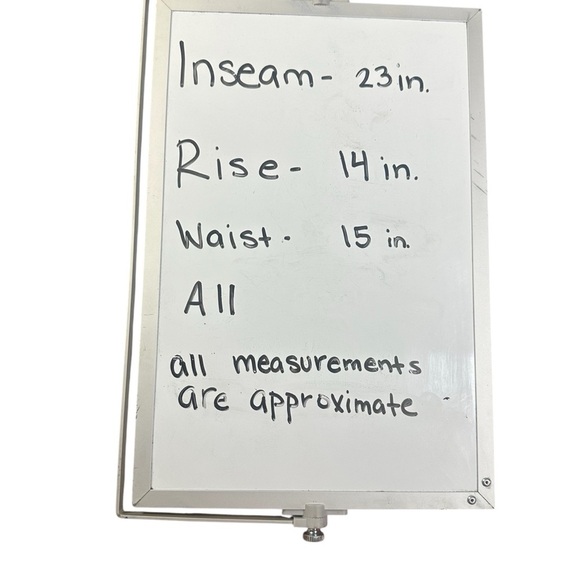 Inseam- 23in.
Rise- 14 in.
Waist- 15 in.
All
all measurements
are approximate